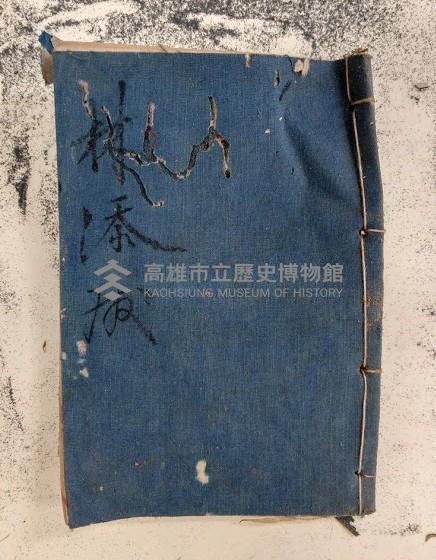 林添成
高雄市立歷史博物館
KAOHSIUNG MUSEUM OF HISTORY